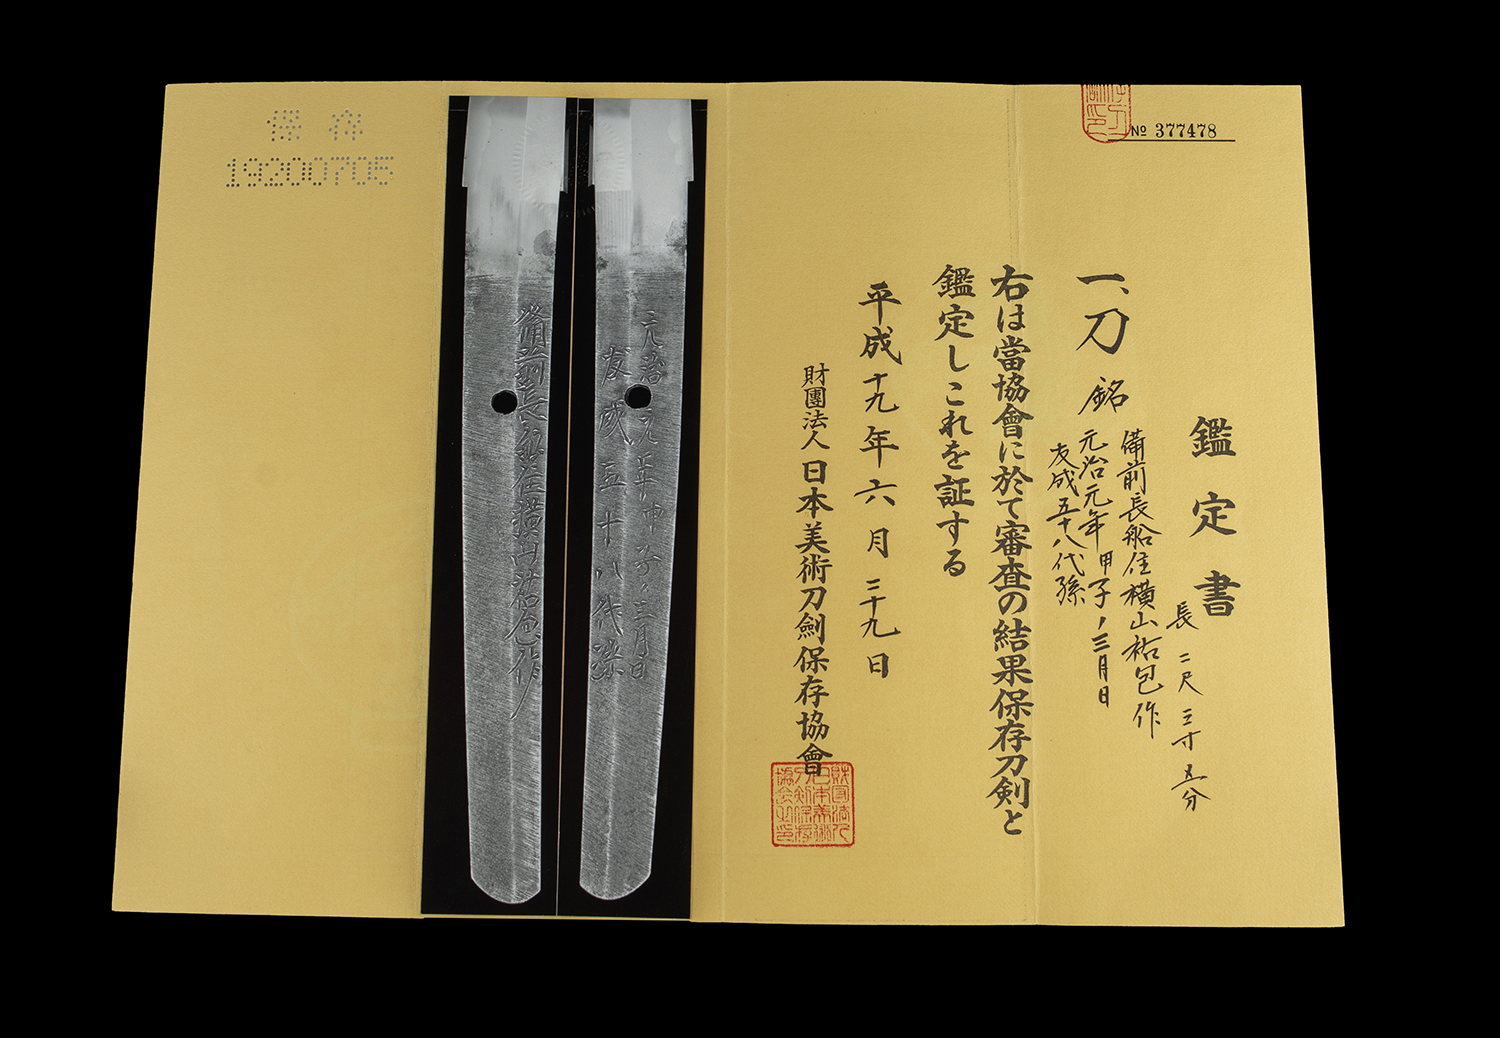 鑑定書
一、刀 銘
備前長船住横山祐包作
元治元年甲子ノ三月日
友成五十八代孫
長 二尺 三寸 五分
右は當協會に於て審査の結果保存刀剣と
鑑定しこれを証する
平成十九年六月二十九日
財團法人 日本美術刀劍保存協會
№ 377478
保存
19200705
備前國長船住横山祐包作
元治元年甲子ノ三月日
友成五十八代孫